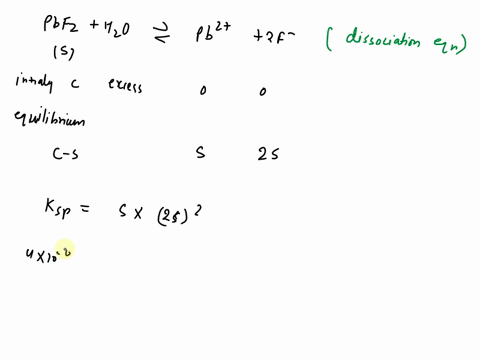 PbF2 + H2O ⇌ Pb2+ + 2F- ( dissociation eqn )
(S)
intialy C excess 0 0
equilibrium
C-S S 2S
Ksp = S × (2S)2
4×10-8